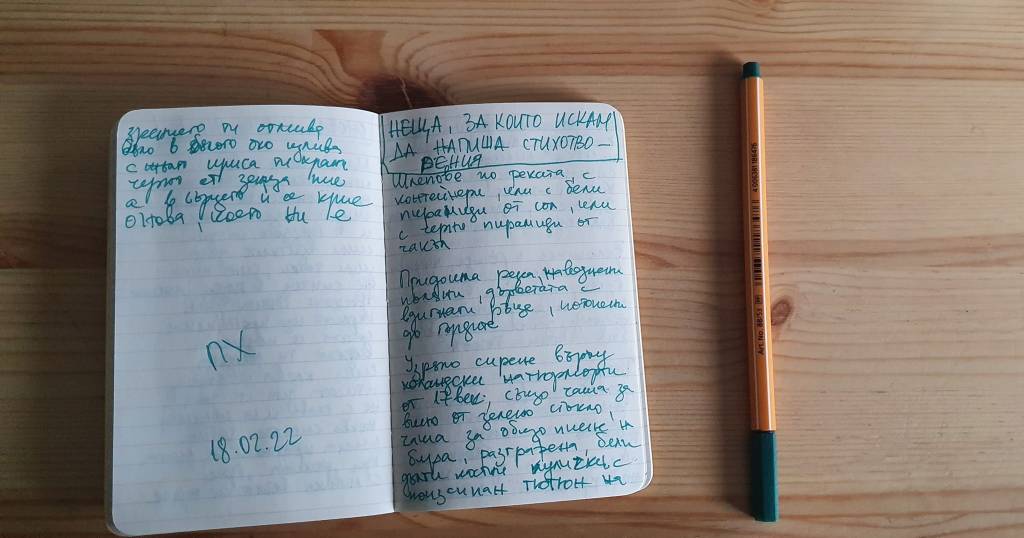 ти отмива
в бялото око излива
с ириса ти
черно от зеница пие
а в сърцето и се крие
онова, което ни е
ПХ
18.02.22
НЕЩА, ЗА КОИТО ИСКАМ
ДА НАПИША СТИХОТВО-
РЕНИЯ
Шлепове по реката, с
контейнери, или с бели
пирамиди от сол, или
с черни пирамиди от
чакъл
Придошла река, наводнени
поляни, дърветата с
вдигнати ръце, потопени
до гърдите
Узряло сирене върху
холандски натюрморти
от 17 век, също чаша за
вино от зелено стъкло,
чаша за общо пиене на
бира, разграфена, бели
дълги костни лулички с
изсипан тютюн на
Art. No. 88/53
4 006381 186476